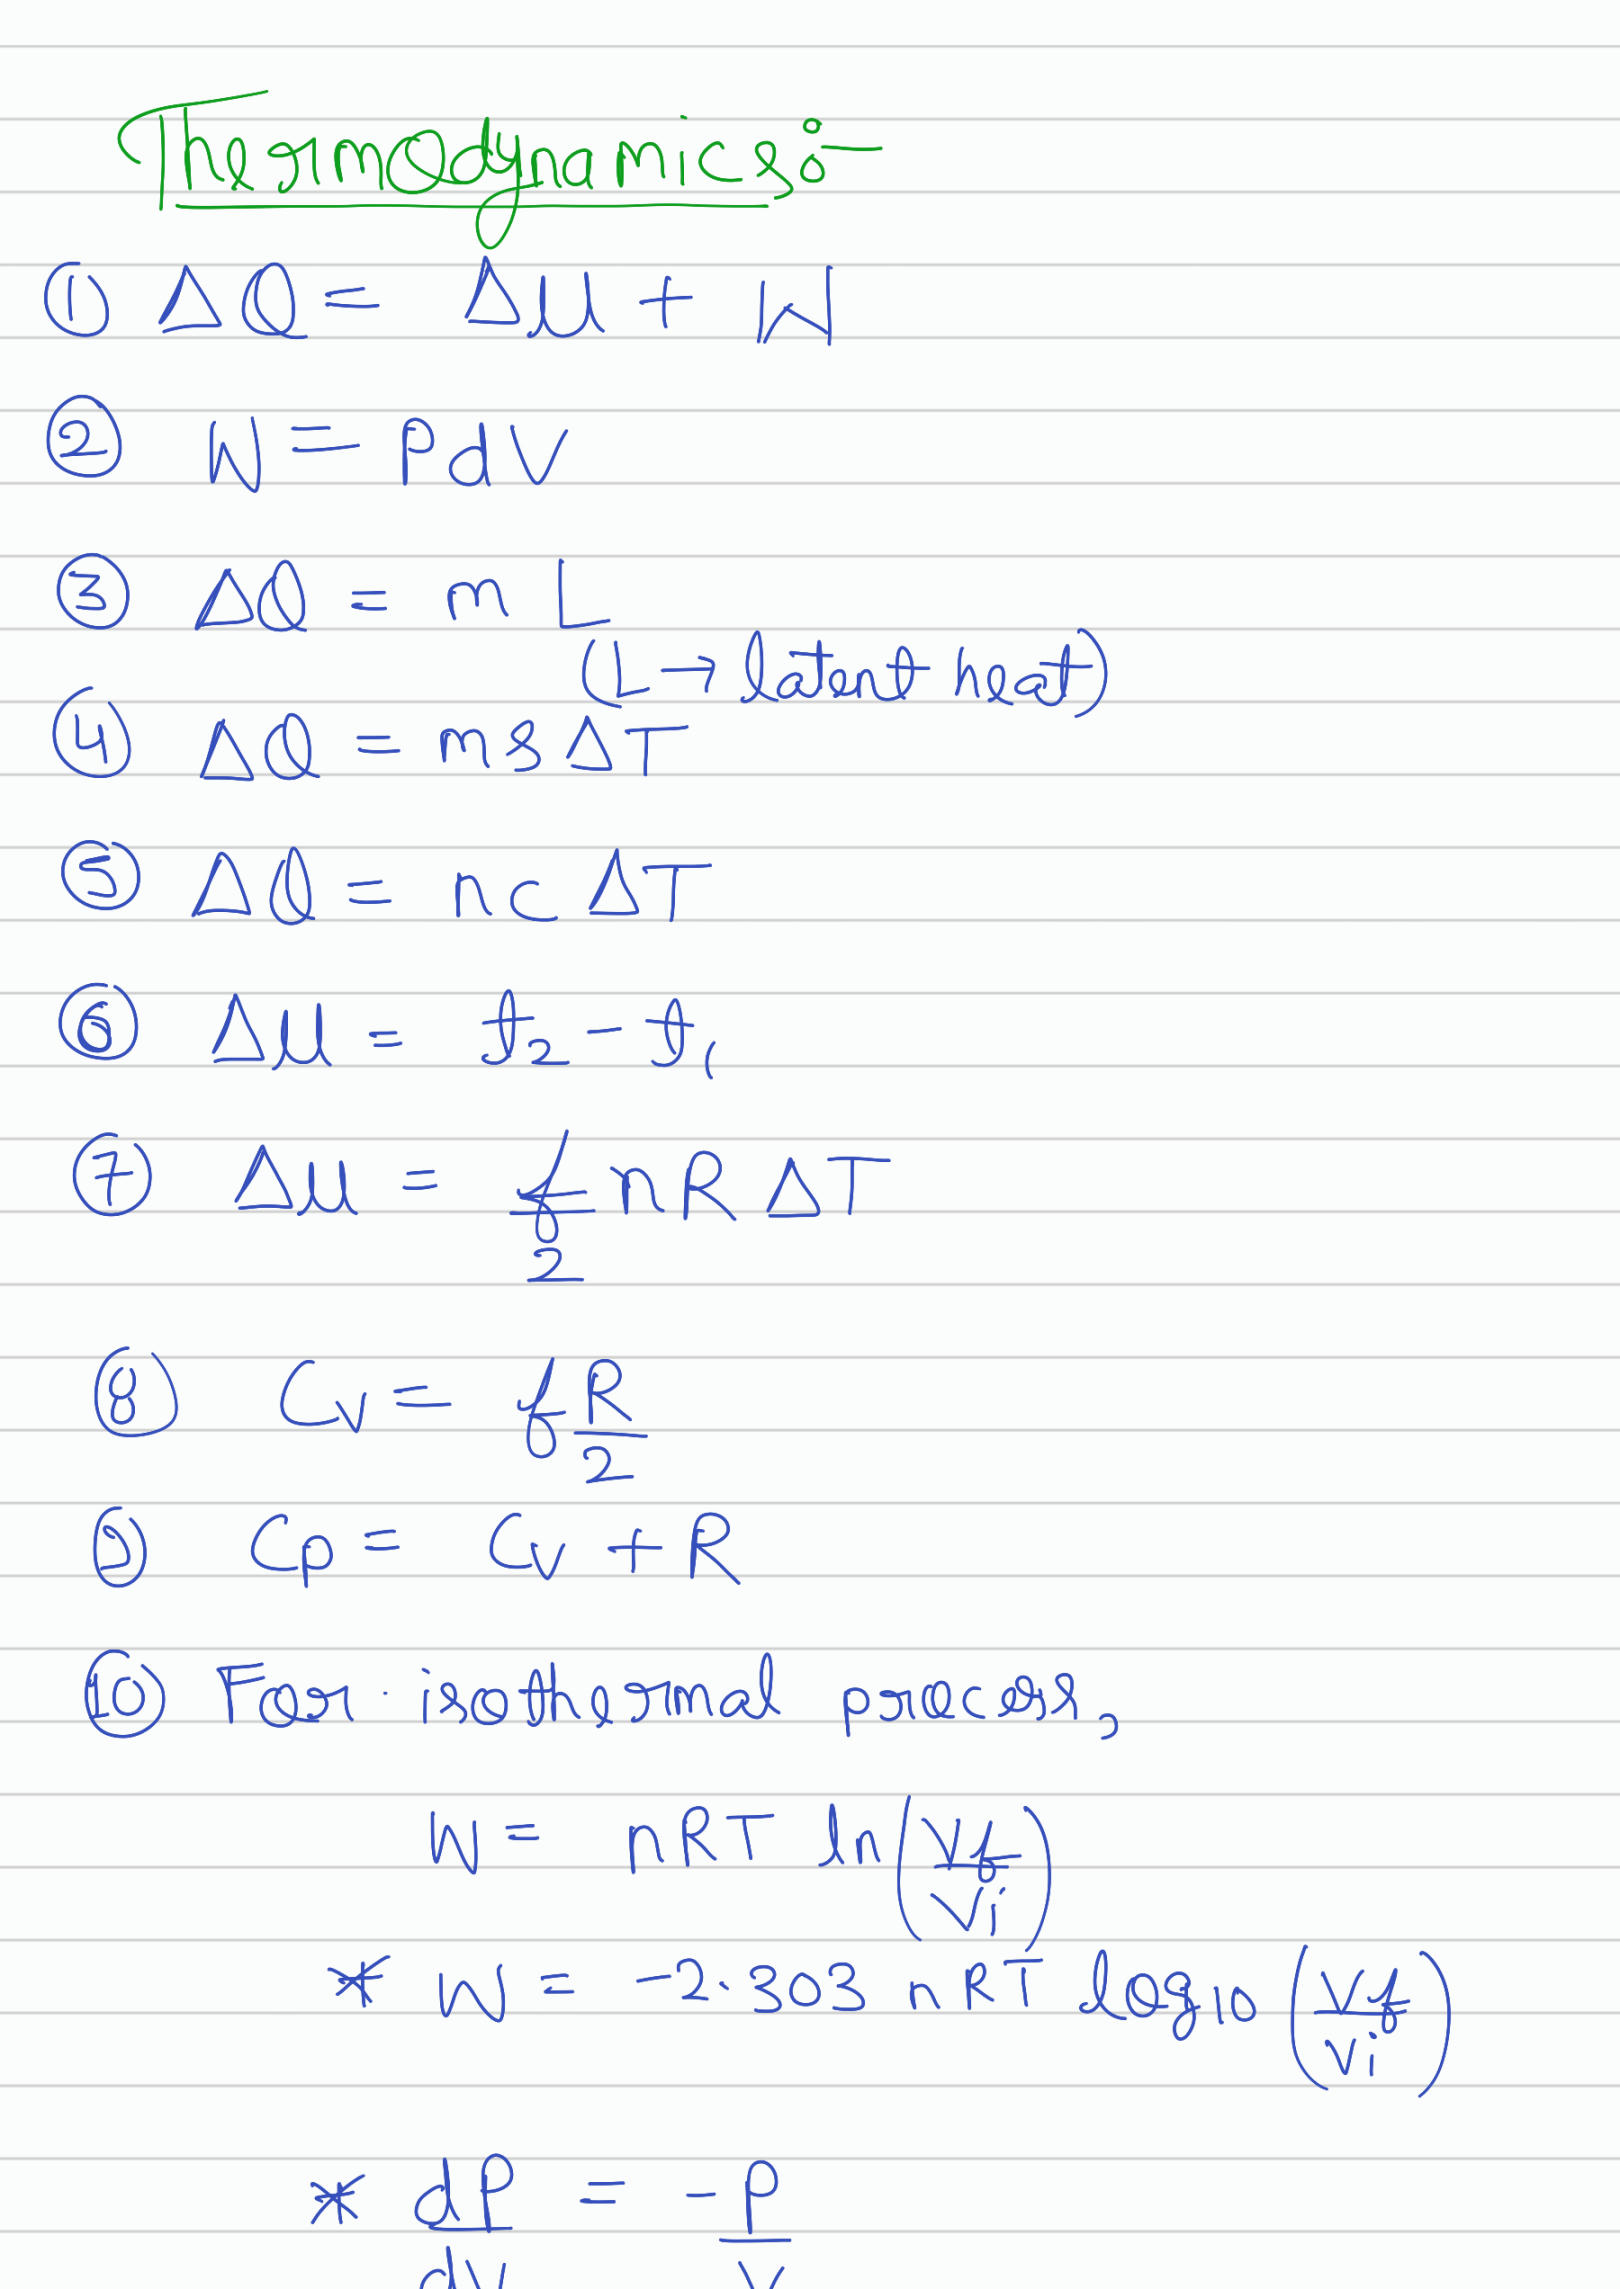 Thermodynamics:-
① ΔQ = ΔU + W
② W = PdV
③ ΔQ = mL
(L → latent heat)
④ ΔQ = msΔT
⑤ ΔQ = nc ΔT
⑥ ΔU = f₂ - f₁
⑦ ΔU = f/2 nRΔT
⑧ Cv = f R/2
⑨ Cp = Cv + R
⑩ For isothermal process,
W = nRT ln(Vf/Vi)
* W = -2.303 nRT log10 (Vf/Vi)
* dP/dV = -P/V